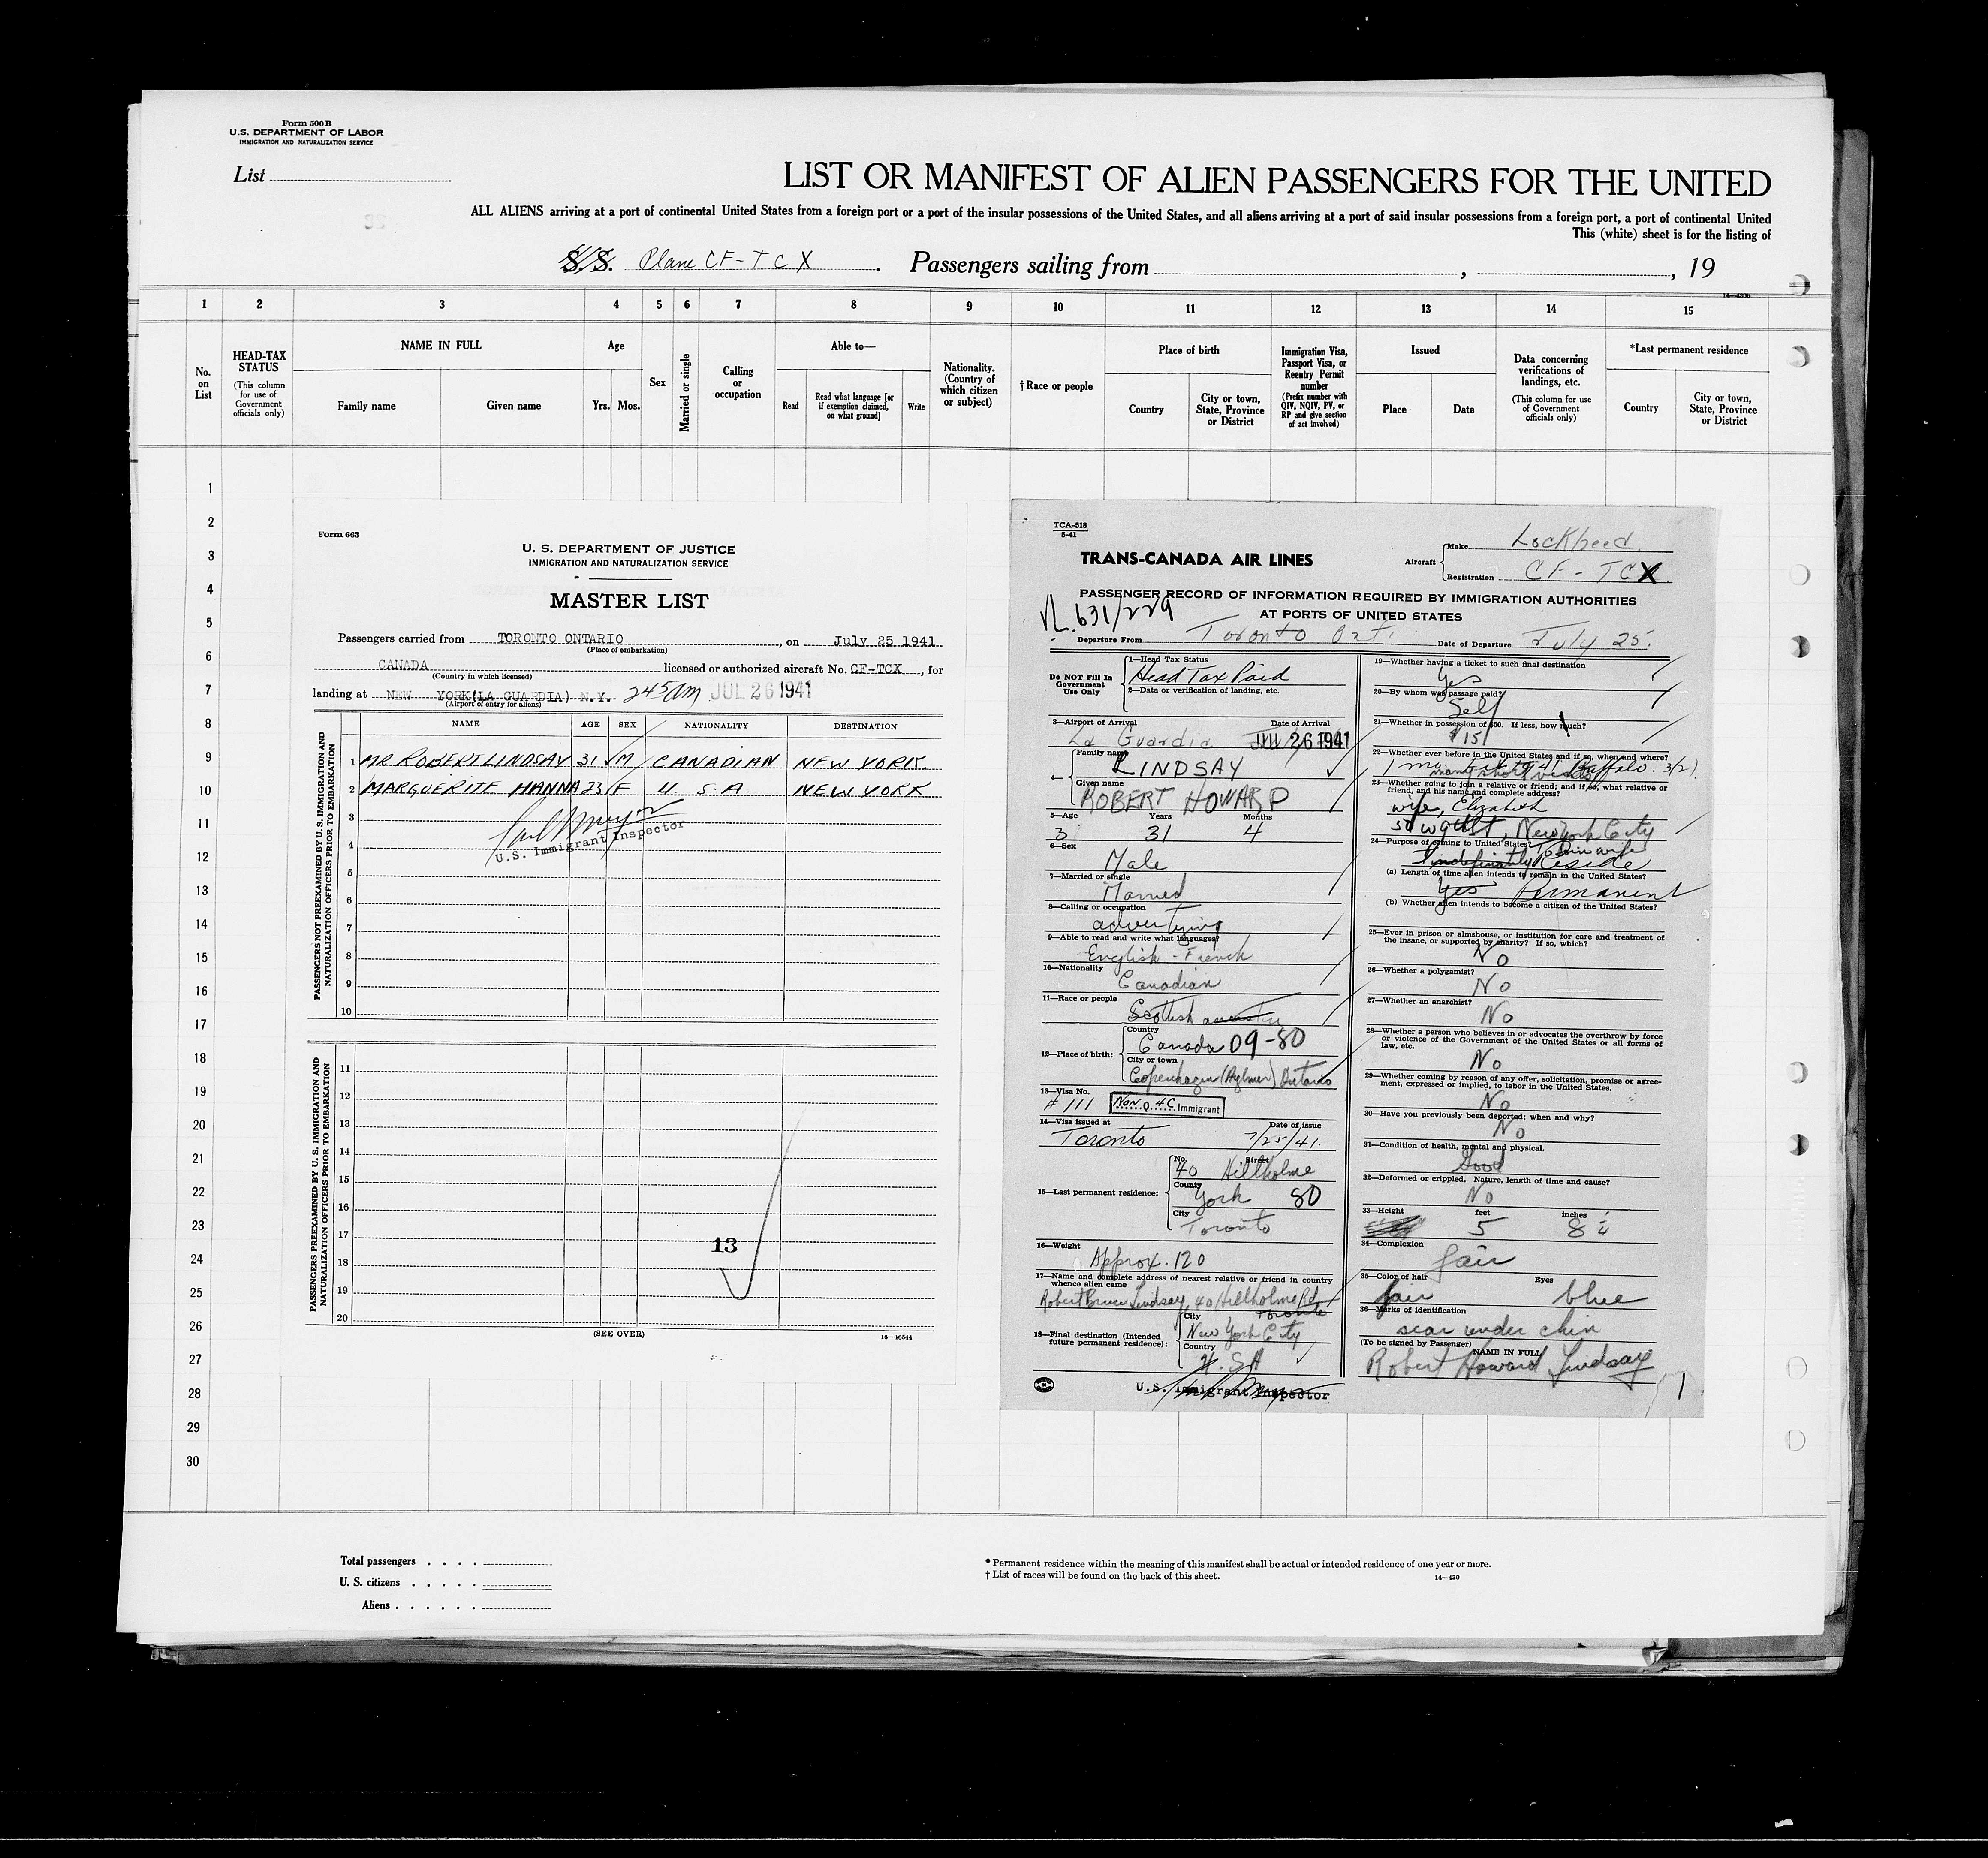 Form 500 B
U.S. DEPARTMENT OF LABOR
IMMIGRATION AND NATURALIZATION SERVICE
List
LIST OR MANIFEST OF ALIEN PASSENGERS FOR THE UNITED
ALL ALIENS arriving at a port of continental United States from a foreign port or a port of the insular possessions of the United States, and all aliens arriving at a port of said insular possessions from a foreign port, a port of continental United
This (white) sheet is for the listing of
S.S. Plane CF-TCX . Passengers sailing from , , 19
1 2 3 4 5 6 7 8 9 10 11 12 13 14 15
No. on List
HEAD-TAX STATUS
(This column for use of Government officials only)
NAME IN FULL
Family name Given name
Age
Yrs. Mos.
Sex
Married or single
Calling or occupation
Able to—
Read
Read what language [or if exemption claimed, on what ground]
Write
Nationality. (Country of which citizen or subject)
†Race or people
Place of birth
Country
City or town, State, Province or District
Immigration Visa, Passport Visa, or Reentry Permit number
(Prefix number with QIV, NQIV, PV, or RP and give section of act involved)
Issued
Place Date
Data concerning verifications of landings, etc.
(This column for use of Government officials only)
*Last permanent residence
Country
City or town, State, Province or District
1
2
3
4
5
6
7
8
9
10
11
12
13
14
15
16
17
18
19
20
21
22
23
24
25
26
27
28
29
30
Form 663
U. S. DEPARTMENT OF JUSTICE
IMMIGRATION AND NATURALIZATION SERVICE
MASTER LIST
Passengers carried from TORONTO ONTARIO , on July 25 1941
(Place of embarkation)
CANADA licensed or authorized aircraft No. CF-TCX , for
(Country in which licensed)
landing at NEW YORK(LA GUARDIA) N.Y. 245am JUL 26 1941
(Airport of entry for aliens)
NAME AGE SEX NATIONALITY DESTINATION
PASSENGERS NOT PREEXAMINED BY U. S. IMMIGRATION AND NATURALIZATION OFFICERS PRIOR TO EMBARKATION
1 MR ROBERT LINDSAY 31 M CANADIAN NEW YORK
2 MARGUERITE HANNA 23 F U. S. A. NEW YORK
3
4
U.S. Immigrant Inspector
5
6
7
8
9
10
PASSENGERS PREEXAMINED BY U. S. IMMIGRATION AND NATURALIZATION OFFICERS PRIOR TO EMBARKATION
11
12
13
14
15
16
17
13
18
19
20
(SEE OVER)
16—16544
TCA-518
5-41
TRANS-CANADA AIR LINES
Aircraft
Make Lockheed
Registration CF-TCX
PASSENGER RECORD OF INFORMATION REQUIRED BY IMMIGRATION AUTHORITIES
AT PORTS OF UNITED STATES
631/229
Departure From Toronto Ont. Date of Departure July 25.
Do NOT Fill In Government Use Only
1—Head Tax Status
Head Tax Paid
2—Data or verification of landing, etc.
3—Airport of Arrival Date of Arrival
La Guardia JUL 26 1941
4—
Family name
LINDSAY
Given name
ROBERT HOWARD
5—Age Years Months
3 31 4
6—Sex
Male
7—Married or single
Married
8—Calling or occupation
advertising
9—Able to read and write what languages?
English - French
10—Nationality
Canadian
11—Race or people
Scottish
12—Place of birth:
Country
Canada 09-80
City or town
Copenhagen (Aylmer) Ontario
13—Visa No.
# 111 Non Q. 4C. Immigrant
14—Visa issued at Date of issue
Toronto 7/25/41.
15—Last permanent residence:
No. Street
40 Hillholme
County
York 80
City
Toronto
16—Weight
Approx. 120
17—Name and complete address of nearest relative or friend in country whence alien came
Robert Bruce Lindsay, 40 Hillholme Rd
Toronto
18—Final destination (Intended future permanent residence):
City
New York City
Country
U. S A
U.S. Immigrant Inspector
19—Whether having a ticket to such final destination
Yes
20—By whom was passage paid?
Self
21—Whether in possession of $50. If less, how much?
$15
22—Whether ever before in the United States and if so, when and where?
many short visits Buffalo
23—Whether going to join a relative or friend; and if so, what relative or friend, and his name and complete address?
wife, Elizabeth
New York City
24—Purpose of coming to United States?
To join wife
indefinitely Reside
(a) Length of time alien intends to remain in the United States?
Yes Permanent
(b) Whether alien intends to become a citizen of the United States?
25—Ever in prison or almshouse, or institution for care and treatment of the insane, or supported by charity? If so, which?
No
26—Whether a polygamist?
No
27—Whether an anarchist?
No
28—Whether a person who believes in or advocates the overthrow by force or violence of the Government of the United States or all forms of law, etc.
No
29—Whether coming by reason of any offer, solicitation, promise or agreement, expressed or implied, to labor in the United States.
No
30—Have you previously been deported; when and why?
No
31—Condition of health, mental and physical.
Good
32—Deformed or crippled. Nature, length of time and cause?
No
33—Height feet inches
5 8
34—Complexion
fair
35—Color of hair Eyes
fair blue
36—Marks of identification
scar under chin
(To be signed by Passenger)
NAME IN FULL
Robert Howard Lindsay
1
Total passengers . . . .
U. S. citizens . . . . .
Aliens . . . . . .
* Permanent residence within the meaning of this manifest shall be actual or intended residence of one year or more.
† List of races will be found on the back of this sheet.
14—430